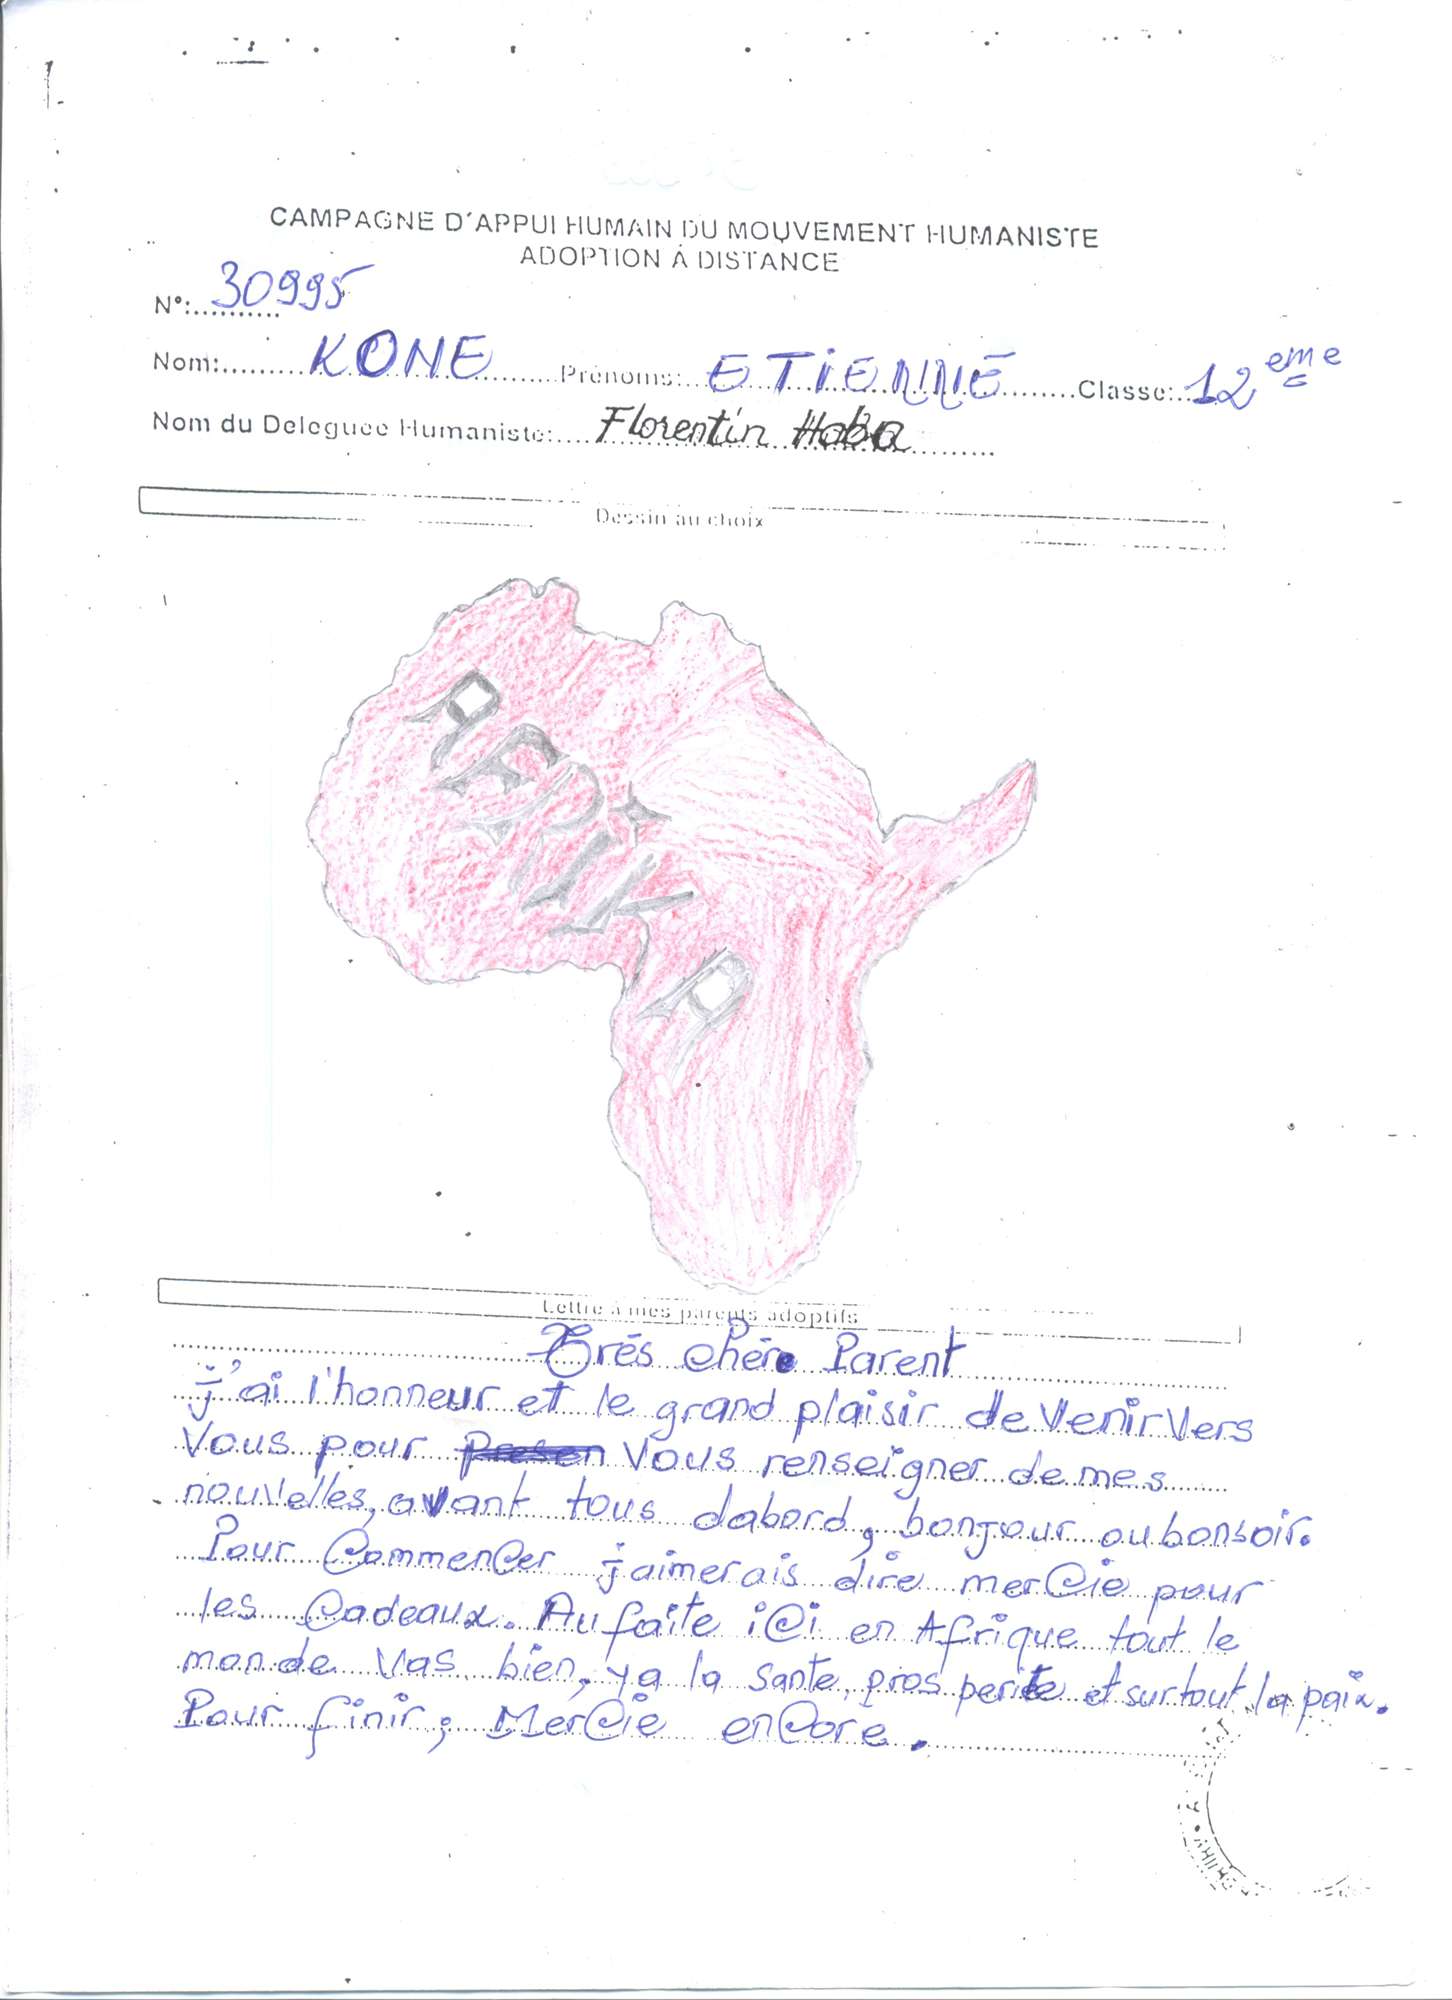 CAMPAGNE D'APPUI HUMAIN DU MOUVEMENT HUMANISTE
ADOPTION À DISTANCE
N°:........... 30995
Nom:......... KONE ........Prénoms:... ETIENNE ......Classe:.. 12 eme
Nom du Deleguee Humaniste:.... Florentin Haba .......
Dessin au choix
AFRIKA
Lettre à mes parents adoptifs
Trés chére Parent
j'ai l'honneur et le grand plaisir de venir vers
Vous pour Presen Vous renseigner de mes
nouvelles, avant tous dabord, bonjour ou bonsoir.
Pour commencer j'aimerais dire mercie pour
les cadeaux. Au faite ici en Afrique tout le
monde vas bien, ya la sante, pros perite et surtout la paix.
Pour finir, Mercie encore.